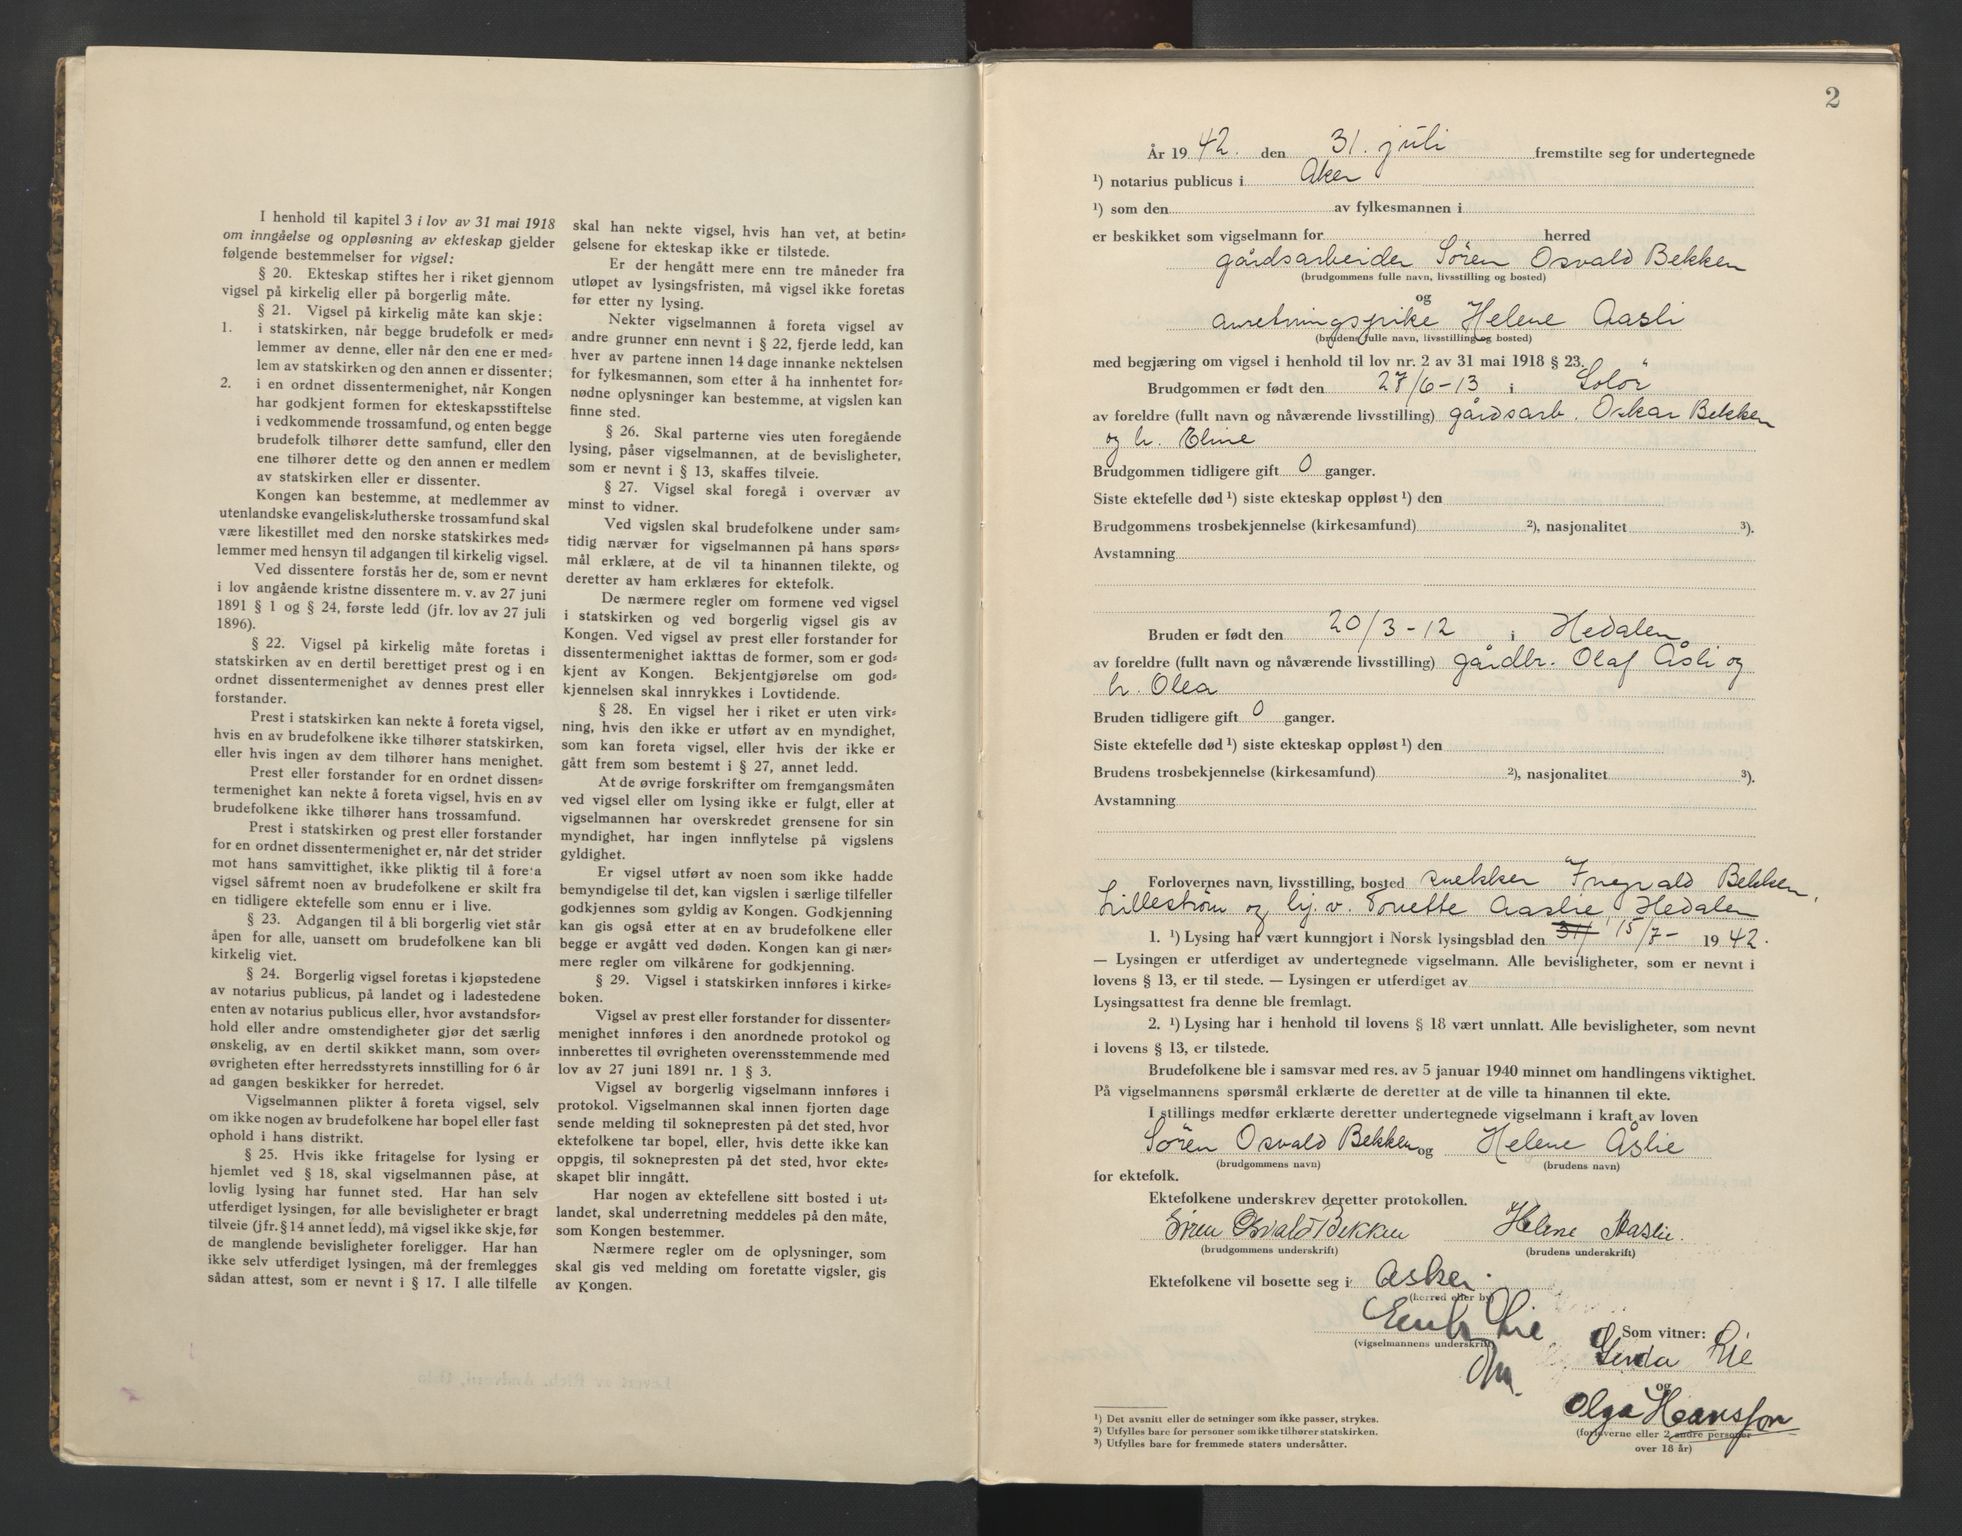 I henhold til kapitel 3 i lov av 31 mai 1918
om inngåelse og oppløsning av ekteskap gjelder
følgende bestemmelser for vigsel:
§ 20. Ekteskap stiftes her i riket gjennom
vigsel på kirkelig eller på borgerlig måte.
§ 21. Vigsel på kirkelig måte kan skje:
1. i statskirken, når begge brudefolk er med-
lemmer av denne, eller når den ene er med-
lem av statskirken og den annen er dissenter;
2. i en ordnet dissentermenighet, når Kongen
har godkjent formen for ekteskapsstiftelse
i vedkommende trossamfund, og enten begge
brudefolk tilhører dette samfund, eller den
ene tilhører dette og den annen er medlem
av statskirken eller er dissenter.
Kongen kan bestemme, at medlemmer av
utenlandske evangelisk-lutherske trossamfund skal
være likestillet med den norske statskirkes med-
lemmer med hensyn til adgangen til kirkelig vigsel.
Ved dissentere forstås her de, som er nevnt
i lov angående kristne dissentere m. v. av 27 juni
1891 § 1 og § 24, første ledd (jfr. lov av 27 juli
1896).
§ 22. Vigsel på kirkelig måte foretas i
statskirken av en dertil berettiget prest og i en
ordnet dissentermenighet av dennes prest eller
forstander.
Prest i statskirken kan nekte å foreta vigsel,
hvis en av brudefolkene ikke tilhører statskirken,
eller hvis ingen av dem tilhører hans menighet.
Prest eller forstander for en ordnet dissen-
termenighet kan nekte å foreta vigsel, hvis en av
brudefolkene ikke tilhører hans trossamfund.
Prest i statskirken og prest eller forstander
for en ordnet dissentermenighet er, når det strider
mot hans samvittighet, ikke pliktig til å fore'a
vigsel såfremt noen av brudefolkene er skilt fra
en tidligere ektefelle som ennu er i live.
§ 23. Adgangen til å bli borgerlig viet står
åpen for alle, uansett om brudefolkene kan bli
kirkelig viet.
§ 24. Borgerlig vigsel foretas i kjøpstedene
av notarius publicus, på landet og i ladestedene
enten av notarius publicus eller, hvor avstandsfor-
hold eller andre omstendigheter gjør det særlig
ønskelig, av en dertil skikket mann, som over-
øvrigheten efter herredsstyrets innstilling for 6 år
ad gangen beskikker for herredet.
Vigselmannen plikter å foreta vigsel, selv
om ikke nogen av brudefolkene har bopel eller fast
ophold i hans distrikt.
§ 25. Hvis ikke fritagelse for lysing er
hjemlet ved § 18, skal vigselmannen påse, at
lovlig lysing har funnet sted. Har han selv
utferdiget lysingen, før alle bevisligheter er bragt
tilveie (jfr. § 14 annet ledd), må vigsel ikke skje, før
de manglende bevisligheter foreligger. Har han
ikke selv utferdiget lysingen, må der fremlegges
sådan attest, som er nevnt i § 17. I alle tilfelle
skal han nekte vigsel, hvis han vet, at betin-
gelsene for ekteskap ikke er tilstede.
Er der hengått mere enn tre måneder fra
utløpet av lysingsfristen, må vigsel ikke foretas
før etter ny lysing.
Nekter vigselmannen å foreta vigsel av
andre grunner enn nevnt i § 22, fjerde ledd, kan
hver av partene innen 14 dage innanke nektelsen
for fylkesmannen, som etter å ha innhentet for-
nødne oplysninger kan bestemme, at vigslen kan
finne sted.
§ 26. Skal parterne vies uten foregående
lysing, påser vigselmannen, at de bevisligheter,
som er nevnt i § 13, skaffes tilveie.
§ 27. Vigsel skal foregå i overvær av
minst to vidner.
Ved vigslen skal brudefolkene under sam-
tidig nærvær for vigselmannen på hans spørs-
mål erklære, at de vil ta hinannen tilekte, og
deretter av ham erklæres for ektefolk.
De nærmere regler om formene ved vigsel
i statskirken og ved borgerlig vigsel gis av
Kongen. Ved vigsel av prest eller forstander for
dissentermenighet iakttas de former, som er god-
kjent av Kongen. Bekjentgjørelse om god-
kjennelsen skal innrykkes i Lovtidende.
§ 28. En vigsel her i riket er uten virk-
ning, hvis den ikke er utført av en myndighet,
som kan foreta vigsel, eller hvis der ikke er
gått frem som bestemt i § 27, annet ledd.
At de øvrige forskrifter om fremgangsmåten
ved vigsel eller om lysing ikke er fulgt, eller at
vigselmannen har overskredet grensene for sin
myndighet, har ingen innflytelse på vigslens
gyldighet.
Er vigsel utført av noen som ikke hadde
bemyndigelse til det, kan vigslen i særlige tilfeller
godkjennes som gyldig av Kongen. Godkjenning
kan gis også etter at en av brudefolkene eller
begge er avgått ved døden. Kongen kan gi nær-
mere regler om vilkårene for godkjenning.
§ 29. Vigsel i statskirken innføres i kirke-
boken.
Vigsel av prest eller forstander for dissenter-
menighet innføres i den anordnede protokol og
innberettes til øvrigheten overensstemmende med
lov av 27 juni 1891 nr. 1 § 3.
Vigsel av borgerlig vigselmann innføres i
protokol. Vigselmannen skal innen fjorten dage
sende melding til soknepresten på det sted, hvor
ektefolkene tar bopel, eller, hvis dette ikke kan
oppgis, til soknepresten på det sted, hvor ekte-
skapet blir inngått.
Har nogen av ektefellene sitt bosted i ut-
landet, skal underretning meddeles på den måte,
som Kongen bestemmer.
Nærmere regler om de oplysninger, som
skal gis ved melding om foretatte vigsler, gis
av Kongen.
2
År 1942. den 31. juli fremstilte seg for undertegnede
¹) notarius publicus i Aker
¹) som den av fylkesmannen i
er beskikket som vigselmann for herred
gårdsarbeider Sören Osvald Bekken
(brudgommens fulle navn, livsstilling og bosted)
og
anretningspike Helene Aasli
(brudens fulle navn, livsstilling og bosted)
med begjæring om vigsel i henhold til lov nr. 2 av 31 mai 1918 § 23.
Brudgommen er født den 27/6-13 i Solör
av foreldre (fullt navn og nåværende livsstilling) gårdsarb. Oskar Bekken
og h. Eline
Brudgommen tidligere gift 0 ganger.
Siste ektefelle død ¹) siste ekteskap oppløst ¹) den
Brudgommens trosbekjennelse (kirkesamfund) ²), nasjonalitet ³).
Avstamning
Bruden er født den 20/3-12 i Hedalen
av foreldre (fullt navn og nåværende livsstilling) gårdbr. Olaf Åsli og
h. Olea
Bruden tidligere gift 0 ganger.
Siste ektefelle død ¹) siste ekteskap oppløst ¹) den
Brudens trosbekjennelse (kirkesamfund) ²), nasjonalitet ³).
Avstamning
Forlovernes navn, livsstilling, bosted snekker Ingvald Bekken,
Lilleström og hj.v. Tonette Aaslie Hedalen
1. ¹) Lysing har vært kunngjort i Norsk lysingsblad den 15/7- 1942.
— Lysingen er utferdiget av undertegnede vigselmann. Alle bevisligheter, som er nevnt i
lovens § 13, er til stede. — Lysingen er utferdiget av
Lysingsattest fra denne ble fremlagt.
2. ¹) Lysing har i henhold til lovens § 18 vært unnlatt. Alle bevisligheter, som nevnt
i lovens § 13, er tilstede.
Brudefolkene ble i samsvar med res. av 5 januar 1940 minnet om handlingens viktighet.
På vigselmannens spørsmål erklærte de deretter at de ville ta hinannen til ekte.
I stillings medfør erklærte deretter undertegnede vigselmann i kraft av loven
Sören Osvald Bekken og Helene Åslie
(brudgommens navn) (brudens navn)
for ektefolk.
Ektefolkene underskrev deretter protokollen.
Sören Osvald Bekken Helene Aaslie.
(brudgommens underskrift) (brudens underskrift)
Ektefolkene vil bosette seg i Asker.
(herred eller by)
Lie Som vitner:
(vigselmannens underskrift) Gerda Lie
og
Olga Hansson
(forloverne eller 2 andre personer
over 18 år)
¹) Det avsnitt eller de setninger som ikke passer, strykes.
²) Utfylles bare for personer som ikke tilhører statskirken.
³) Utfylles bare for fremmede staters undersåtter.